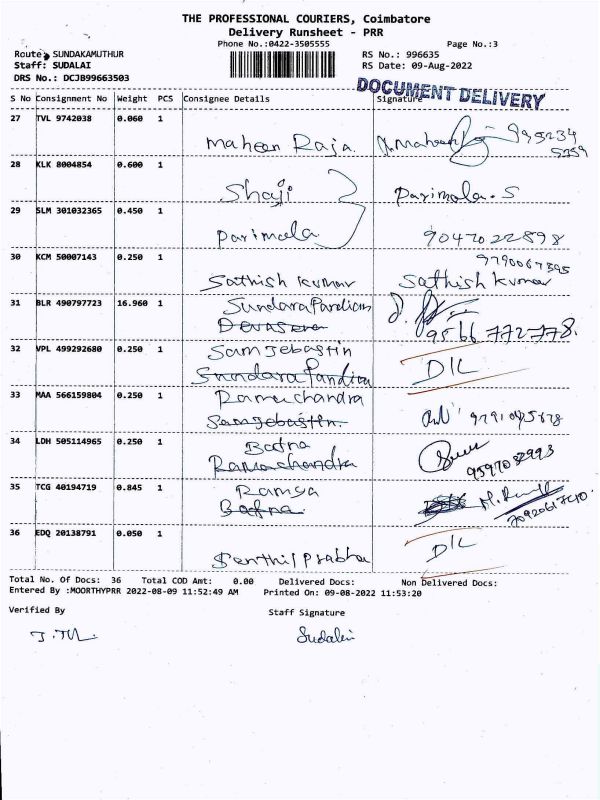 THE PROFESSIONAL COURIERS, Coimbatore
Delivery Runsheet - PRR
Phone No.:0422-3505555 Page No.:3
Route: SUNDAKAMUTHUR RS No.: 996635
Staff: SUDALAI RS Date: 09-Aug-2022
DRS No.: DCJB99663503
DOCUMENT DELIVERY
S No Consignment No Weight PCS Consignee Details Signature
27 TVL 9742038 0.060 1
maheen Raja
28 KLK 8004854 0.600 1
Shaji Parimala.S
29 SLM 301032365 0.450 1
Parimala 9047022898
30 KCM 50007143 0.250 1 9790067595
Sathish kumar Sathish kumar
31 BLR 490797723 16.960 1 Sundara Pandian
9566 772778.
32 VPL 499292680 0.250 1 Sam Jebastin
Sundara Pandian D/L
33 MAA 566159804 0.250 1 Ramachandra
Samjebastin
34 LDH 505114965 0.250 1 Bafna
Ramachandra 9597082993
35 TCG 40194719 0.845 1 Ramya
Bafna
36 EDQ 20138791 0.050 1 D/L
Senthil Prabha
Total No. Of Docs: 36 Total COD Amt: 0.00 Delivered Docs: Non Delivered Docs:
Entered By :MOORTHYPRR 2022-08-09 11:52:49 AM Printed On: 09-08-2022 11:53:20
Verified By Staff Signature
Sudalai